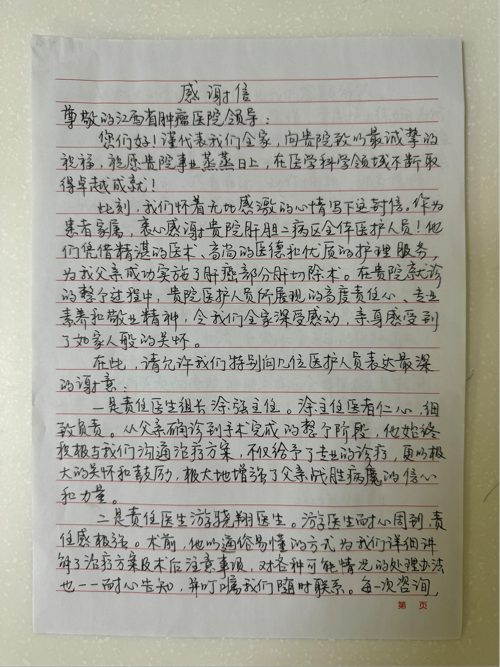 感谢信
尊敬的江西省肿瘤医院领导：
您们好！谨代表我们全家，向贵院致以最诚挚的
祝福，祝愿贵院事业蒸蒸日上，在医学科学领域不断取
得卓越成就！
此刻，我们怀着无比感激的心情写下这封信。作为
患者家属，衷心感谢贵院肝胆二病区全体医护人员！他
们凭借精湛的医术、高尚的医德和优质的护理服务，
为我父亲成功实施了肝癌部分肝切除术。在贵院就诊
的整个过程中，贵院医护人员所展现的高度责任心、专业
素养和敬业精神，令我们全家深受感动，亲身感受到
了如家人般的关怀。
在此，请允许我们特别向几位医护人员表达最深
的谢意：
一是责任医生组长涂强主任。涂主任医者仁心，细
致负责。从父亲确诊到手术完成的整个阶段，他始终
积极与我们沟通治疗方案，不仅给予了专业的诊疗，更以极
大的关怀和鼓励，极大地增强了父亲战胜病魔的信心
和力量。
二是责任医生游骁翔医生。游医生耐心周到，责
任感极强。术前，他以通俗易懂的方式为我们详细讲
解了治疗方案及术后注意事项，对各种可能情况的处理办法
也一一耐心告知，并叮嘱我们随时联系。每一次咨询，
第 页